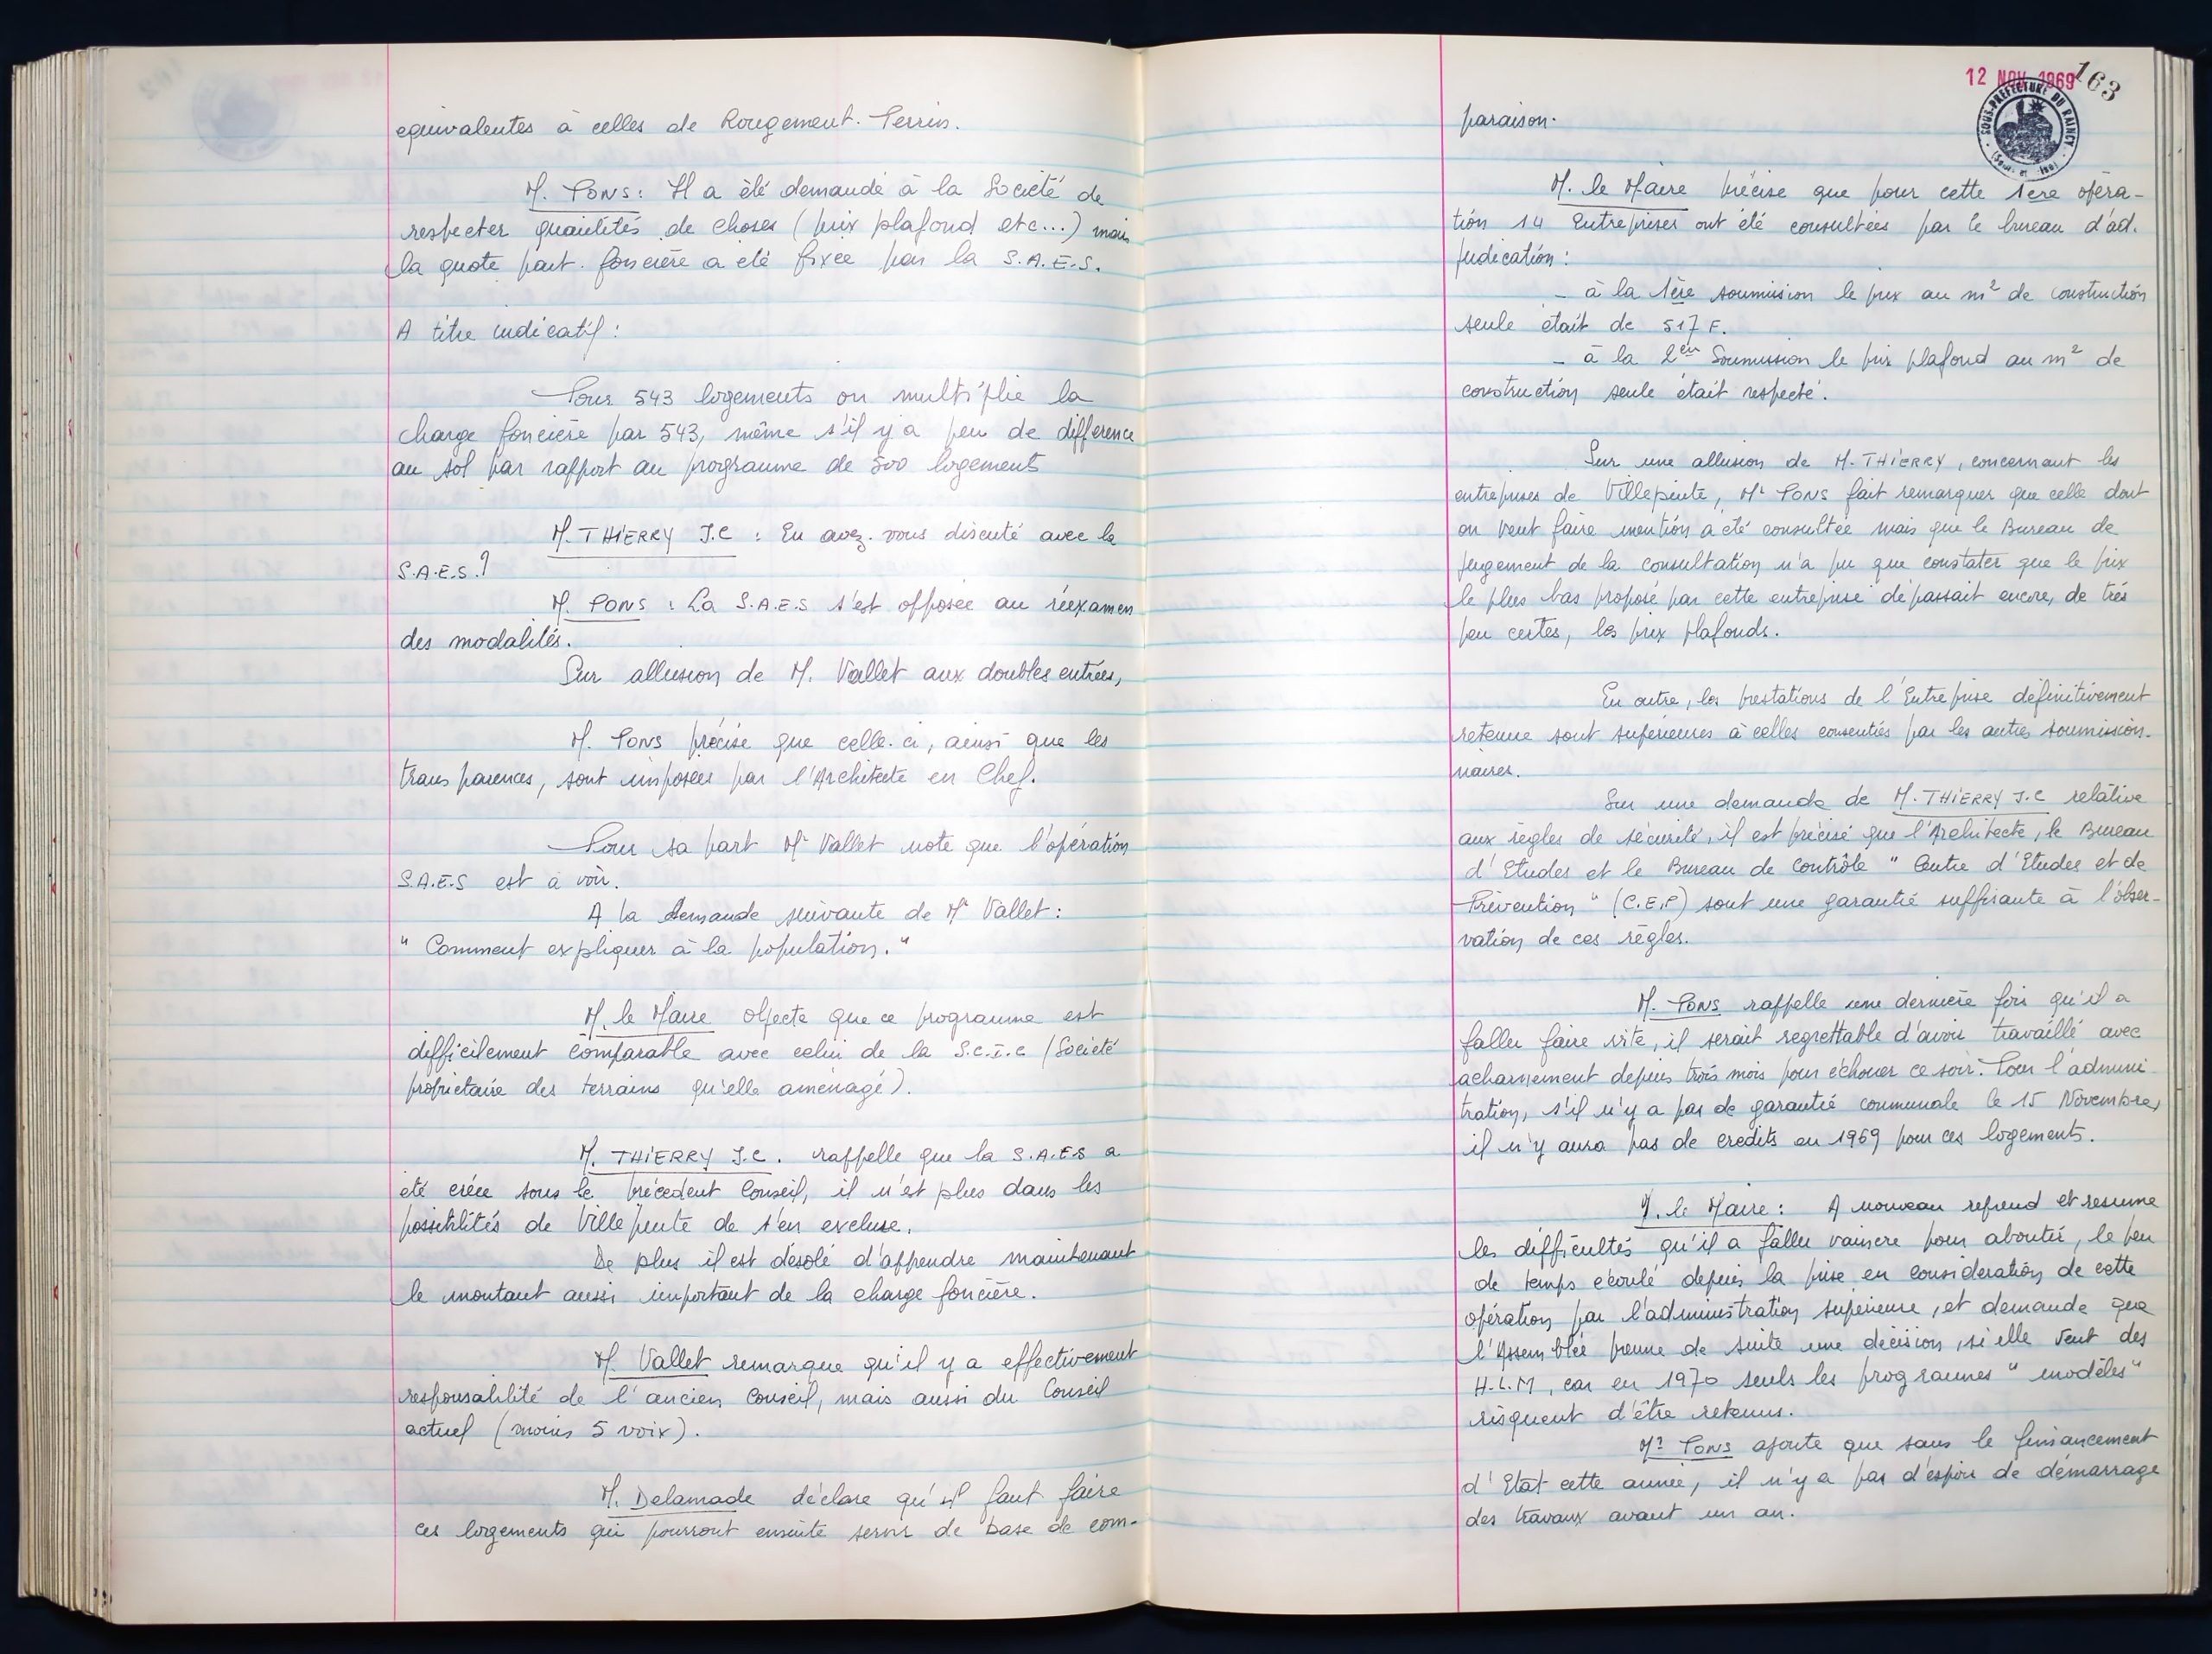 equivalentes à celles de Rougement. Perrin.
M. PONS: Il a été demandé à la Société de
respecter quantités de choses (prix plafond etc...) mais
la quote part. foncière a été fixée par la S.A.E.S.
A titre indicatif:
Pour 543 logements on multiplie la
charge foncière par 543, même s'il y a peu de différence
au sol par rapport au programme de 500 logements
M. THIERRY J.C : En avez-vous discuté avec la
S.A.E.S.?
M. PONS : La S.A.E.S s'est opposée au réexamen
des modalités.
Sur allusion de M. Vallet aux doubles entrées,
M. PONS précise que celle-ci, ainsi que les
transparences, sont imposées par l'Architecte en Chef.
Pour sa part Mr Vallet note que l'opération
S.A.E.S est à voir.
A la demande suivante de Mr Vallet:
"Comment expliquer à la population."
M. le Maire objecte que ce programme est
difficilement comparable avec celui de la S.C.I.C (Société
propriétaire des terrains qu'elle aménagé).
M. THIERRY J.C. rappelle que la S.A.E.S a
été créée sous le précédent Conseil, il n'est plus dans les
possibilités de Villepinte de s'en exclure.
De plus il est désolé d'apprendre maintenant
le montant aussi important de la charge foncière.
M. Vallet remarque qu'il y a effectivement
responsabilité de l'ancien Conseil, mais aussi du Conseil
actuel (moins 5 voix).
M. Delamade déclare qu'il faut faire
ces logements qui pourront ensuite servir de base de com-
12 NOV 1969
163
SOUS-PREFECTURE DU RAINCY
paraison.
M. le Maire précise que pour cette 1ère opéra-
tion 14 Entreprises ont été consultées par le bureau d'ad.
judication:
- à la 1ère soumission le prix au m² de construction
seule était de 517 F.
- à la 2ème Soumission le prix plafond au m² de
construction seule était respecté.
Sur une allusion de M. THIERRY, concernant les
entreprises de Villepinte, Mr PONS fait remarquer que celle dont
on veut faire mention a été consultée mais que le Bureau de
jugement de la consultation n'a pu que constater que le prix
le plus bas proposé par cette entreprise dépassait encore, de très
peu certes, les prix plafonds.
En outre, les prestations de l'Entreprise définitivement
retenue sont supérieures à celles consenties par les autres soumission-
naires.
Sur une demande de M. THIERRY J.C relative
aux règles de sécurité, il est précisé que l'Architecte, le Bureau
d'Etudes et le Bureau de Contrôle "Centre d'Etudes et de
Prévention" (C.E.P) sont une garantie suffisante à l'obser-
vation de ces règles.
M. PONS rappelle une dernière fois qu'il a
fallu faire vite, il serait regrettable d'avoir travaillé avec
acharnement depuis trois mois pour échouer ce soir. Pour l'adminis
tration, s'il n'y a pas de garantie communale le 15 Novembre,
il n'y aura pas de crédits en 1969 pour ces logements.
M. le Maire: A nouveau reprend et résume
les difficultés qu'il a fallu vaincre pour aboutir, le peu
de temps écoulé depuis la prise en considération de cette
opération par l'administration supérieure, et demande que
l'Assemblée prenne de suite une décision, si elle veut des
H.L.M, car en 1970 seuls les programmes "modèles"
risquent d'être retenus.
Mr PONS ajoute que sans le financement
d'Etat cette année, il n'y a pas d'espoir de démarrage
des travaux avant un an.